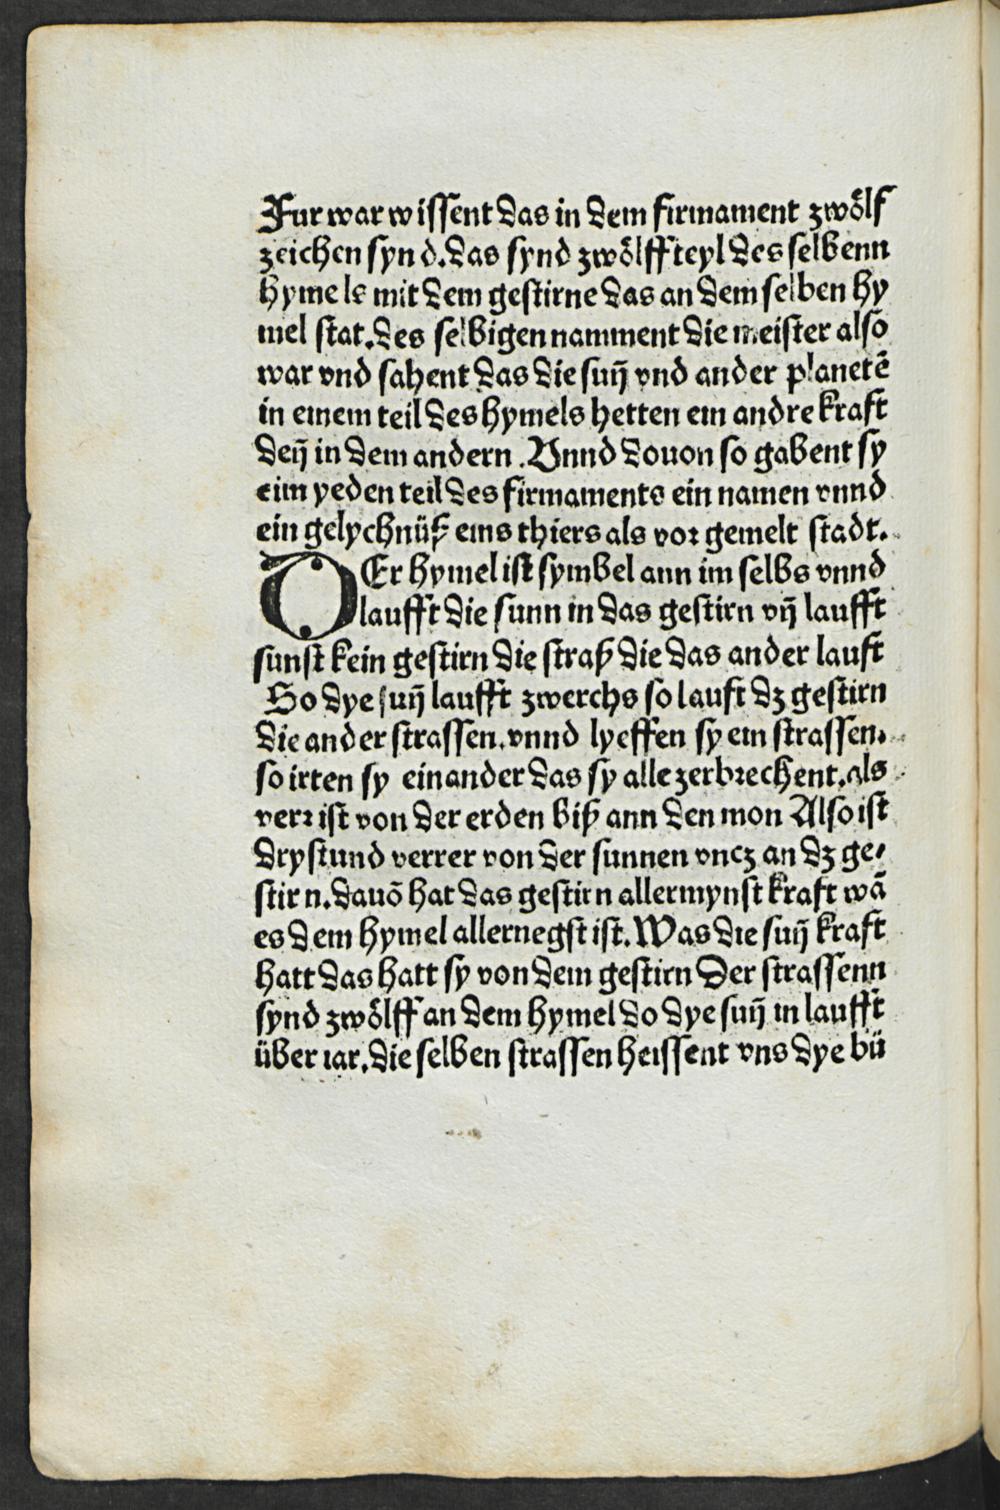 Fur war wissent das in dem firmament zwoͤlf
zeichen synd. das synd zwoͤlff teyl des selbenn
hymels mit dem gestirne das an dem selben hy
mel stat. des selbigen namment die meister also
war vnd sahent das die suñ vnd ander planetē
in einem teil des hymels hetten ein andre kraft
deñ in dem andern. Vnnd douon so gabent sy
eim yeden teil des firmaments ein namen vnnd
ein gelychnüß eins thiers als vor gemelt stadt.
DEr hymel ist symbel ann im selbs vnnd
laufft die sunn in das gestirn vñ laufft
sunst kein gestirn die straß die das ander lauft
So dye suñ laufft zwerchs so lauft dz gestirn
die ander strassen. vnnd lyeffen sy ein strassen.
so irten sy einander das sy alle zerbrechent. als
verr ist von der erden biß ann den mon Also ist
drystund verrer von der sunnen vncz an dz ge⸗
stirn. dauō hat das gestirn allermynst kraft wā
es dem hymel allernegst ist. Was die suñ kraft
hatt das hatt sy von dem gestirn Der strassenn
synd zwoͤlff an dem hymel do dye suñ in laufft
über iar. die selben strassen heissent vns dye bü